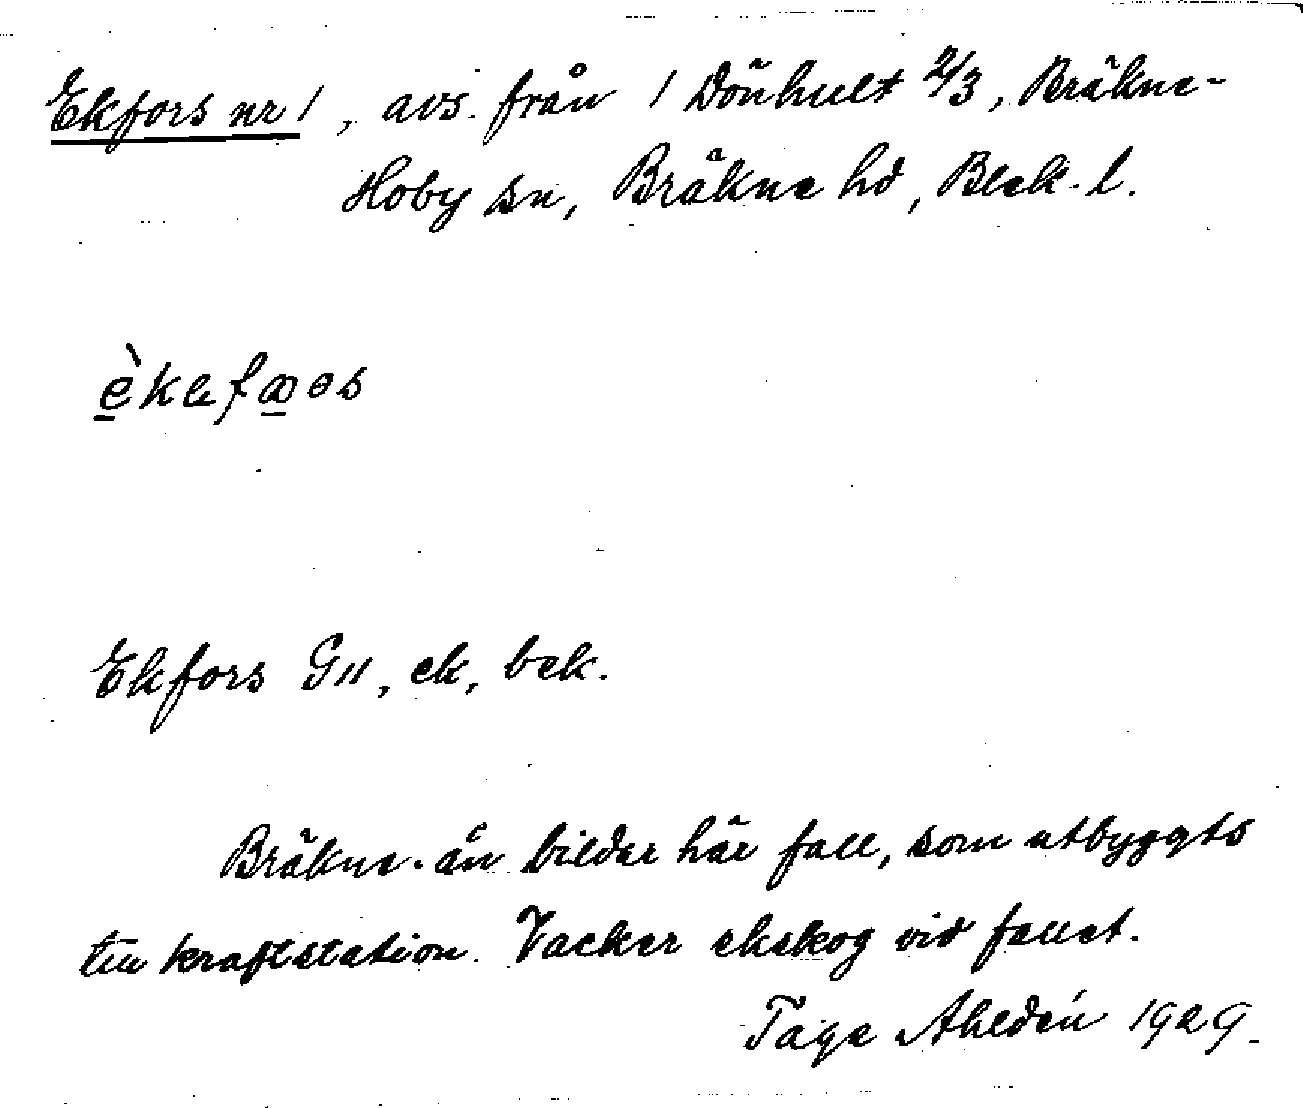 Ekfors nr 1, avs. från 1 Dönhult 2/3, Bräkne-
Hoby sn, Bräkne hd, Blek. l.
èkefors
Ekfors G11, ek, bek.
Bräkne-ån bildar här fall, som utbyggts
till kraftstation. Vacker ekskog vid fallet.
Tage Ahldén 1929.